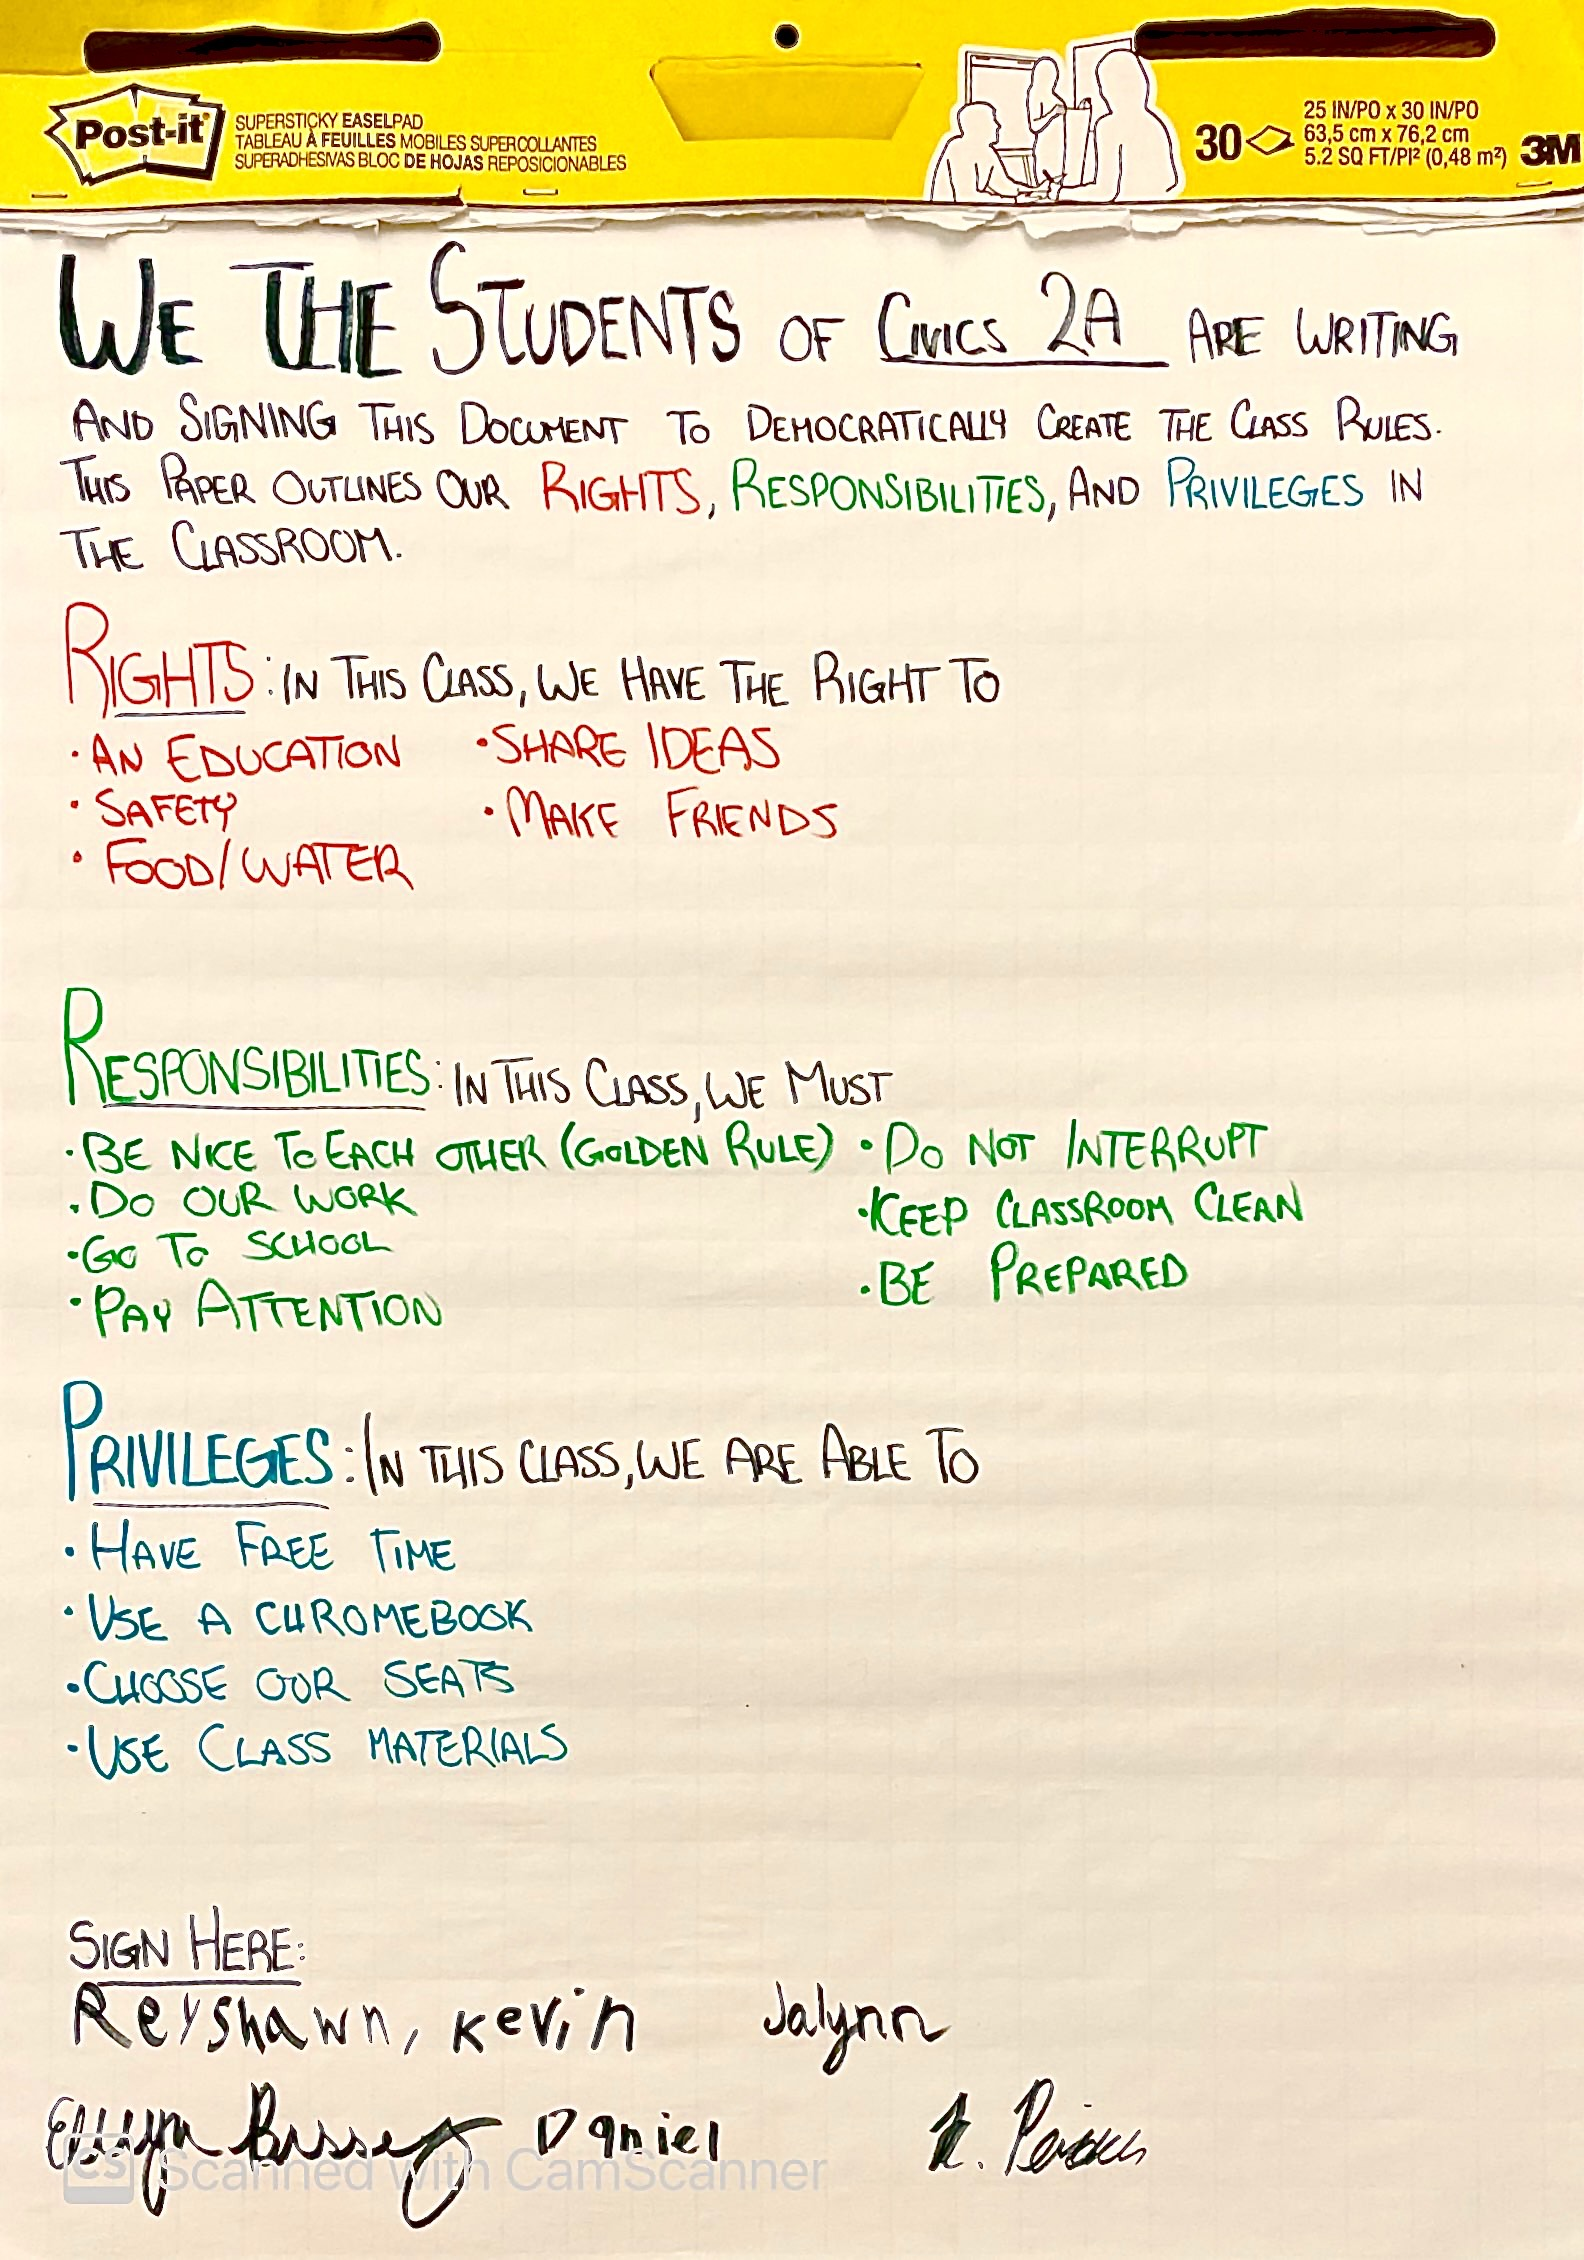 Post-it
SUPERSTICKY EASELPAD
TABLEAU À FEUILLES MOBILES SUPERCOLLANTES
SUPERADHESIVAS BLOC DE HOJAS REPOSICIONABLES
30
25 IN/PO x 30 IN/PO
63,5 cm x 76,2 cm
5.2 SQ FT/PI² (0,48 m²)
3M
WE THE STUDENTS OF CIVICS 2A ARE WRITING
AND SIGNING THIS DOCUMENT TO DEMOCRATICALLY CREATE THE CLASS RULES.
THIS PAPER OUTLINES OUR RIGHTS, RESPONSIBILITIES, AND PRIVILEGES IN
THE CLASSROOM.
RIGHTS: IN THIS CLASS, WE HAVE THE RIGHT TO
• AN EDUCATION
• SAFETY
• FOOD/WATER
• SHARE IDEAS
• MAKE FRIENDS
RESPONSIBILITIES: IN THIS CLASS, WE MUST
• BE NICE TO EACH OTHER (GOLDEN RULE)
• DO OUR WORK
• GO TO SCHOOL
• PAY ATTENTION
• DO NOT INTERRUPT
• KEEP CLASSROOM CLEAN
• BE PREPARED
PRIVILEGES: IN THIS CLASS, WE ARE ABLE TO
• HAVE FREE TIME
• USE A CHROMEBOOK
• CHOOSE OUR SEATS
• USE CLASS MATERIALS
SIGN HERE:
Reyshawn, Kevin Jalynn
Daniel
CS Scanned with CamScanner